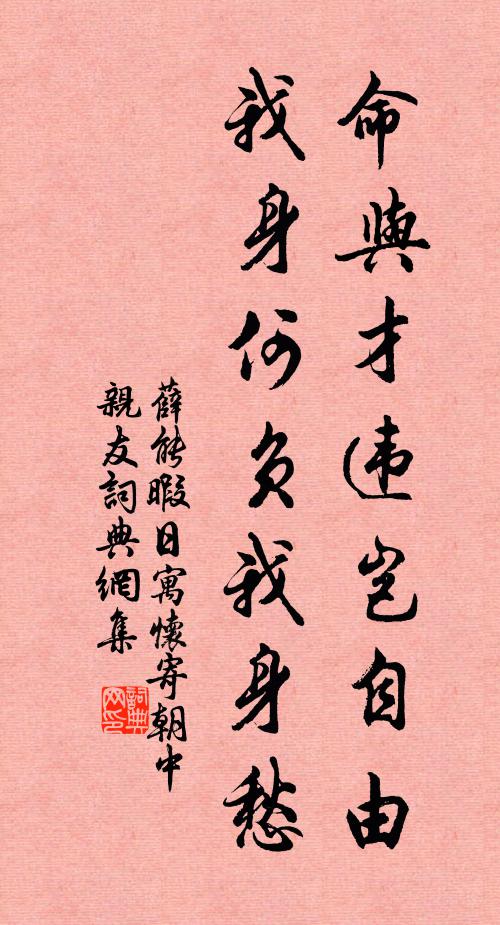 命與才違岂自由
我身何负我身愁
薛能暇日寓懷寄朝中
親友詞典網集
詞典网印